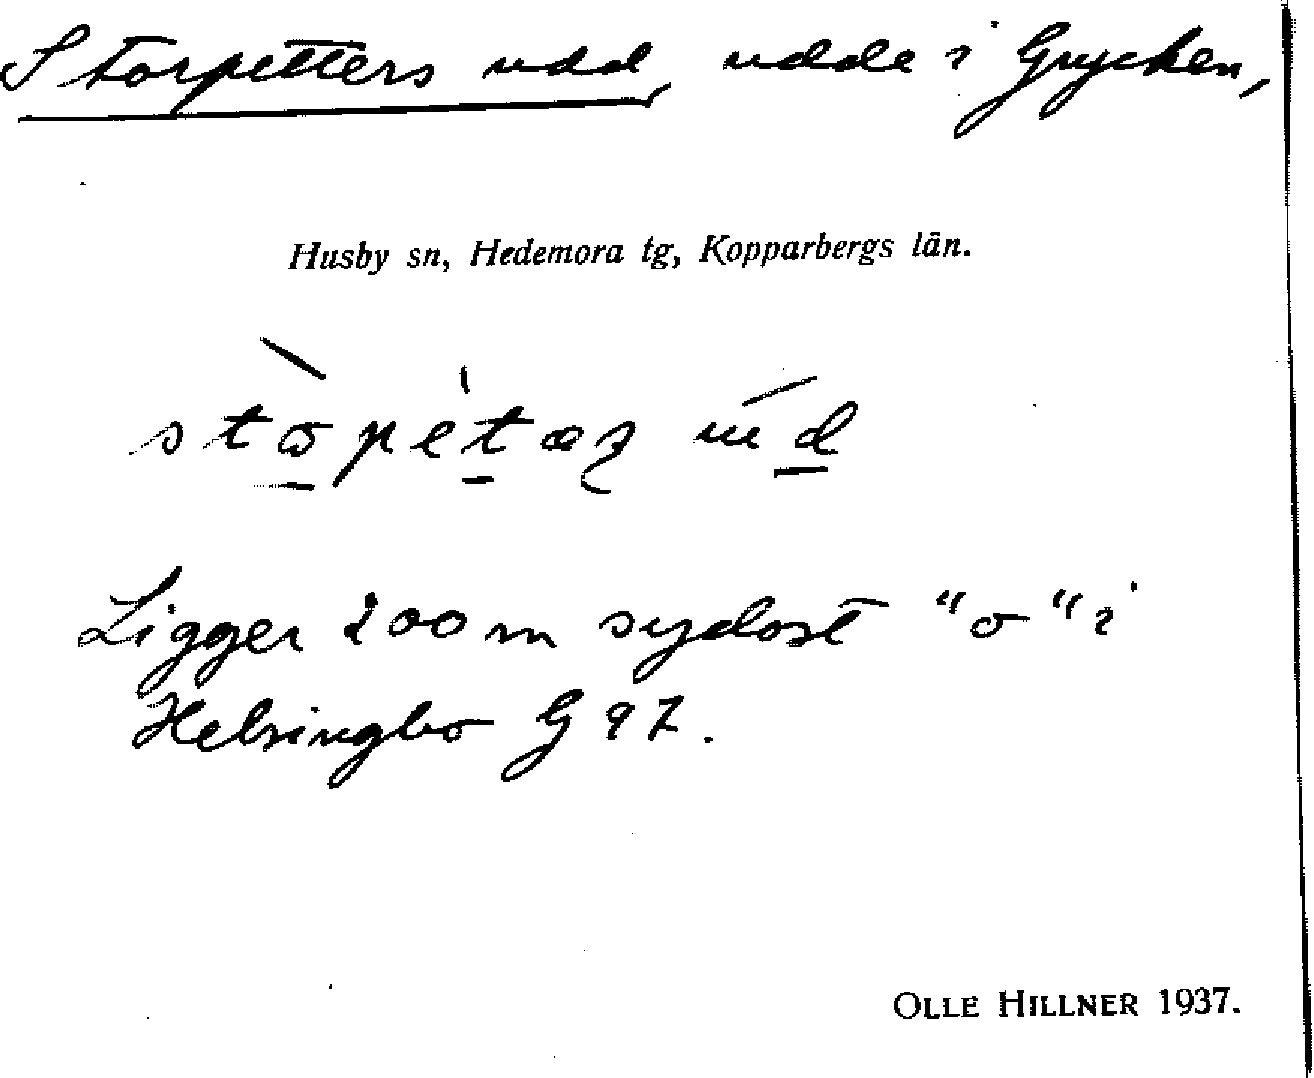 Storpetters udd, udde i Grycken,
Husby sn, Hedemora tg, Kopparbergs län.
Ligger 200 m sydost "o" i
Helsingbo G 97.
OLLE HILLNER 1937.